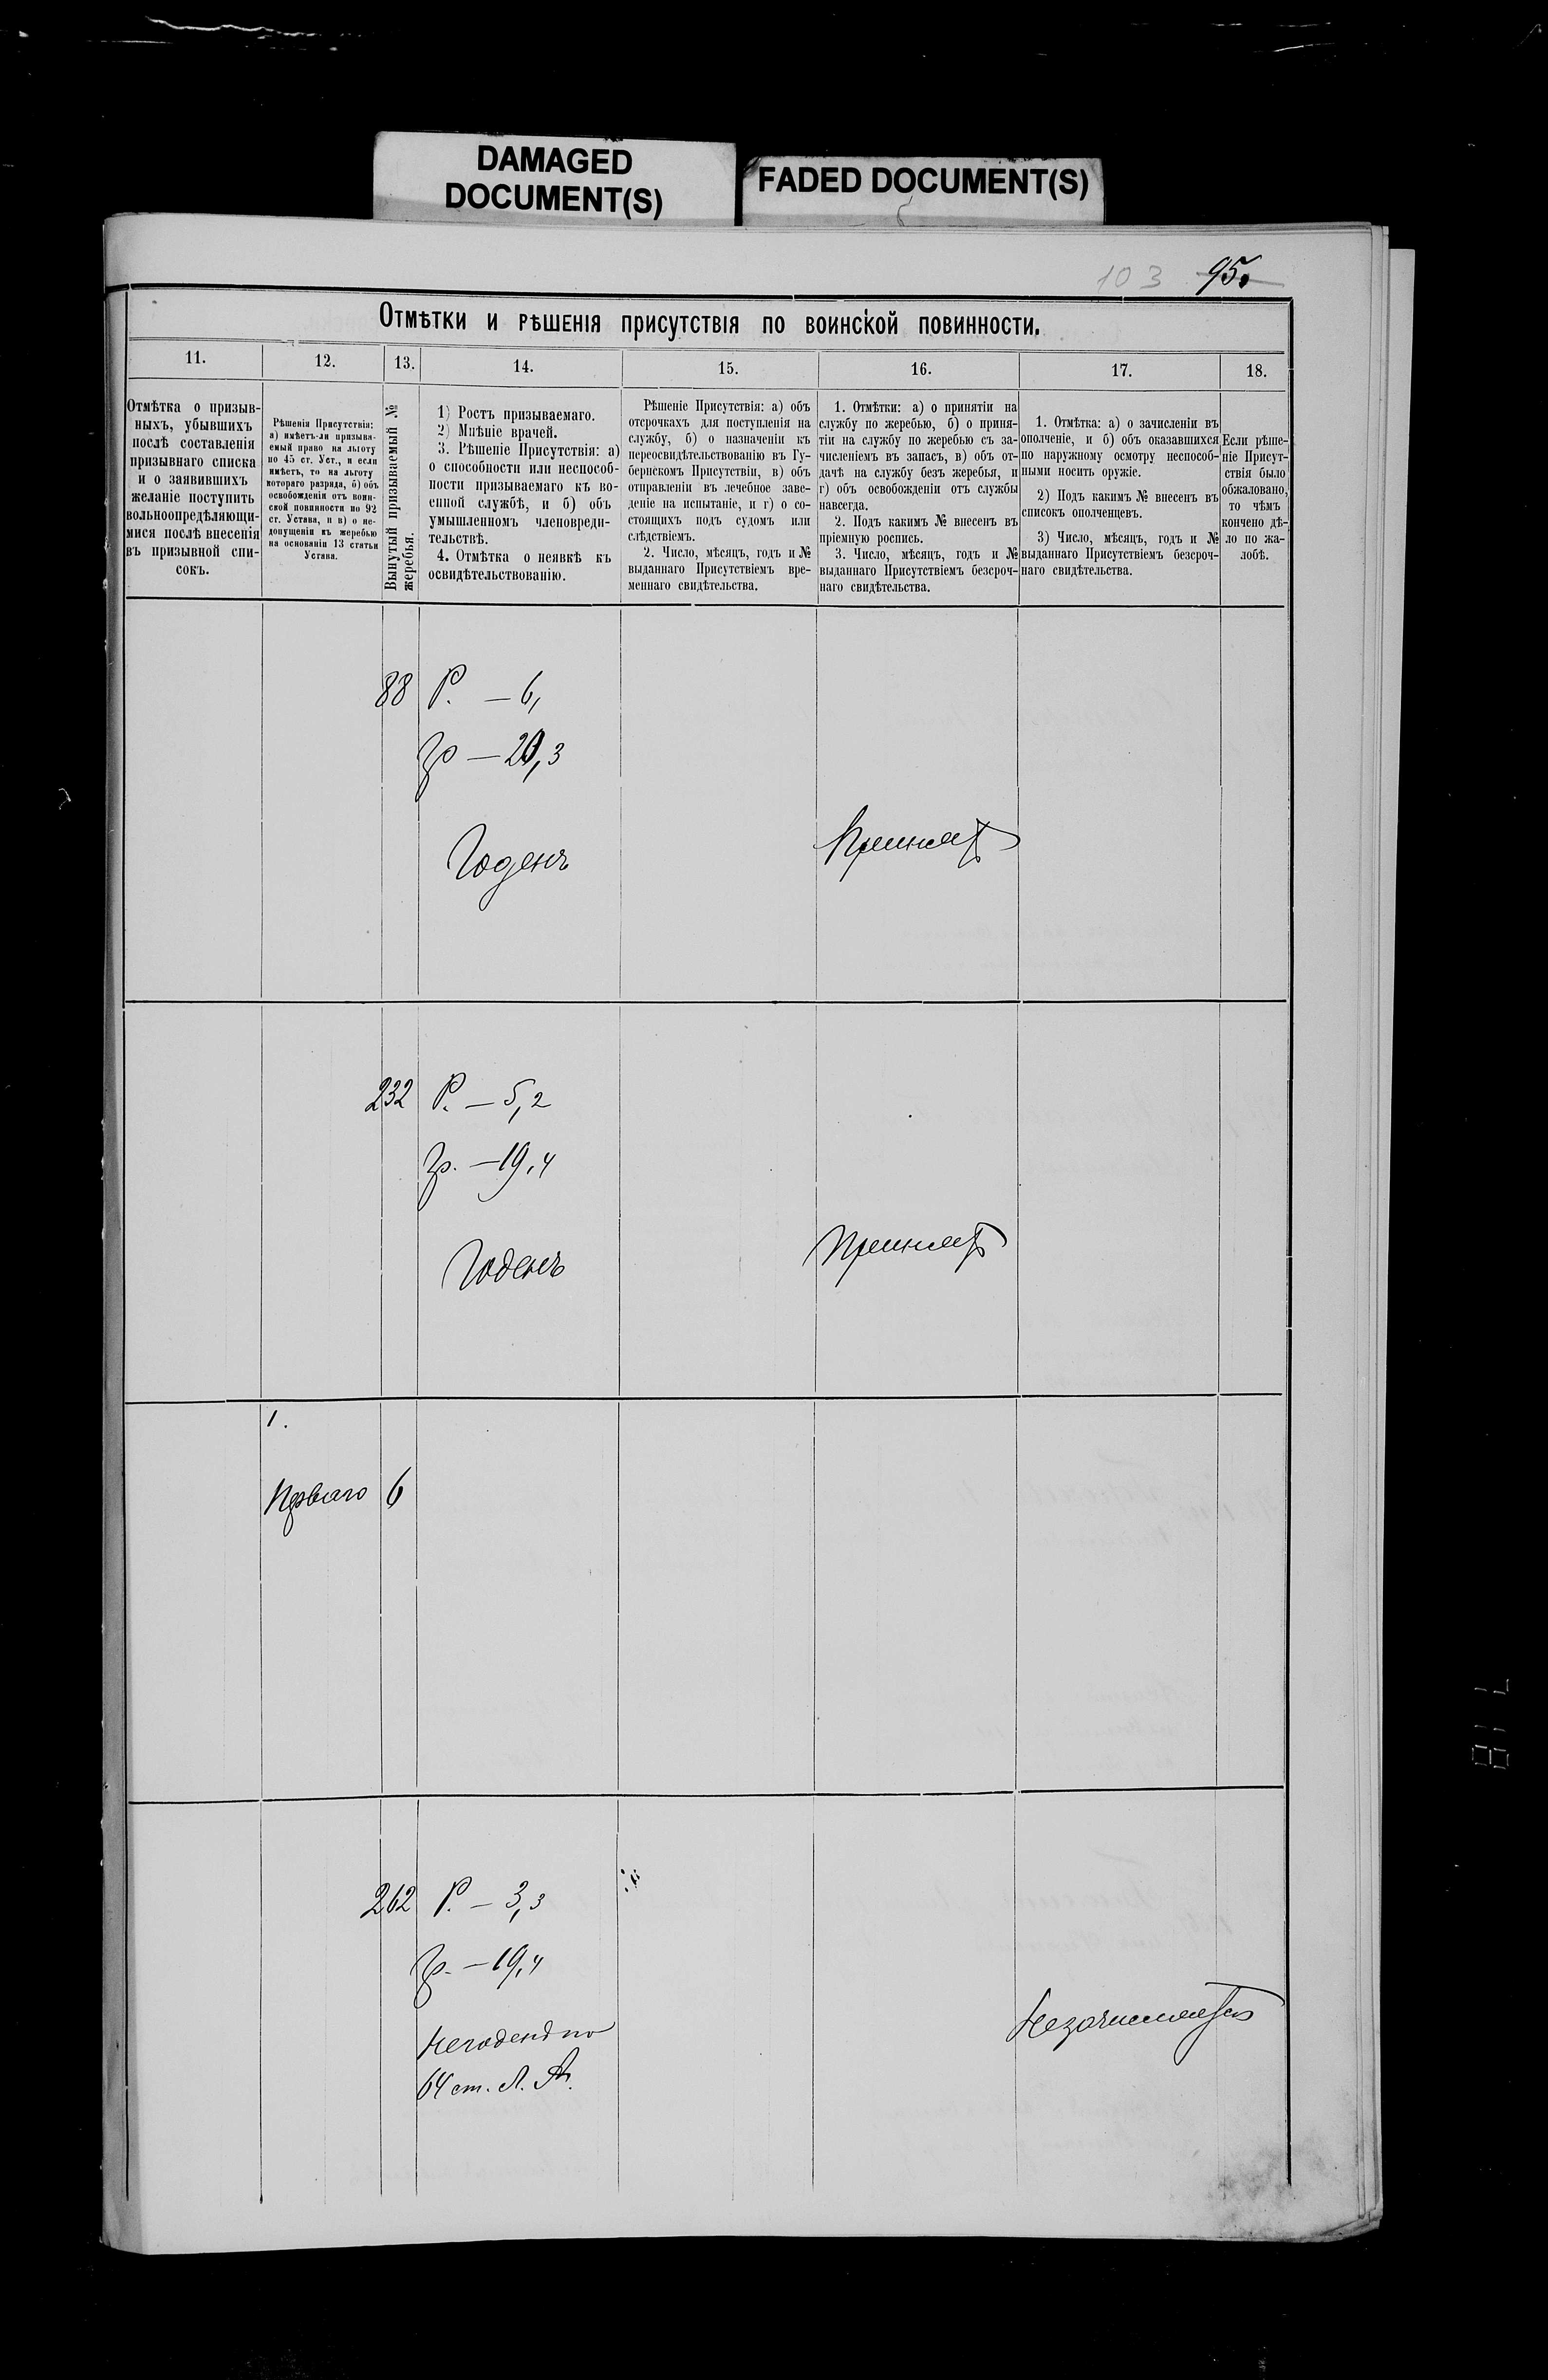 DAMAGED
DOCUMENT(S)
FADED DOCUMENT(S)
103 95.
Отмѣтки и рѣшенія присутствія по воинской повинности.
11.
12.
13.
14.
15.
16.
17.
18.
Отмѣтка о призыв-
ныхъ, убывшихъ
послѣ составленія
призывнаго списка
и о заявившихъ
желаніе поступить
вольноопредѣляющи-
мися послѣ внесенія
въ призывной спи-
сокъ.
Рѣшенія Присутствія:
а) имѣетъ-ли призыва-
емый право на льготу
по 45 ст. Уст., и если
имѣетъ, то на льготу
котораго разряда, б) объ
освобожденіи отъ воин-
ской повинности по 92
ст. Устава, и в) о не-
допущеніи къ жеребью
на основаніи 13 статьи
Устава.
Вынутый призываемый №
жеребья.
1) Ростъ призываемаго.
2) Мнѣніе врачей.
3. Рѣшеніе Присутствія: а)
о способности или неспособ-
ности призываемаго къ во-
енной службѣ, и б) объ
умышленномъ членовреди-
тельствѣ.
4. Отмѣтка о неявкѣ къ
освидѣтельствованію.
Рѣшеніе Присутствія: а) объ
отсрочкахъ для поступленія на
службу, б) о назначеніи къ
переосвидѣтельствованію въ Гу-
бернскомъ Присутствіи, в) объ
отправленіи въ лечебное заве-
деніе на испытаніе, и г) о со-
стоящихъ подъ судомъ или
слѣдствіемъ.
2. Число, мѣсяцъ, годъ и №
выданнаго Присутствіемъ вре-
меннаго свидѣтельства.
1. Отмѣтки: а) о принятіи на
службу по жеребью, б) о приня-
тіи на службу по жеребью съ за-
численіемъ въ запасъ, в) объ от-
дачѣ на службу безъ жеребья, и
г) объ освобожденіи отъ службы
навсегда.
2. Подъ какимъ № внесенъ въ
пріемную роспись.
3. Число, мѣсяцъ, годъ и №
выданнаго Присутствіемъ безсроч-
наго свидѣтельства.
1. Отмѣтка: а) о зачисленіи въ
ополченіе, и б) объ оказавшихся
по наружному осмотру неспособ-
ными носить оружіе.
2) Подъ какимъ № внесенъ въ
списокъ ополченцевъ.
3) Число, мѣсяцъ, годъ и №
выданнаго Присутствіемъ безсроч-
наго свидѣтельства.
Если рѣше-
ніе Присут-
ствія было
обжаловано,
то чѣмъ
кончено дѣ-
ло по жа-
лобѣ.
88 Р. — 6,
Гр — 20,3
Годенъ
Принятъ
232 Р. — 5,2
Гр. — 19,4
Годенъ
Принятъ
1.
Перваго 6
262 Р. — 3,3
Гр. — 19,4
Негоденъ по
64 ст. Л. А.
Незачисляется